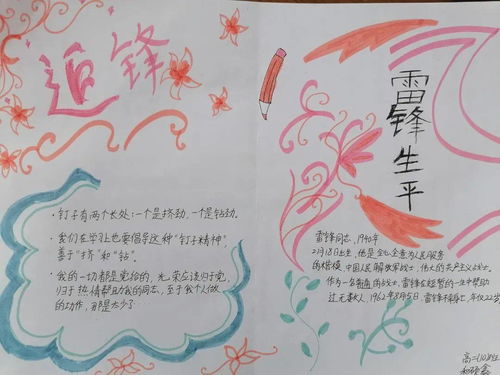 追锋
·钉子有两个长处:一个是挤劲,一个是钻劲。
·我们在学习上也要倡导这种“钉子精神”,
善于“挤”和“钻”。
·我的一切都是党给的,光荣应该归于党,
归于热情帮助我的同志,至于我个人做
的工作,那是太少了…
雷锋生平
雷锋同志,1940年
2月18日出生,他是全心全意为人民服务
的楷模,中国人民解放军战士,伟大的共产主义战士。
作为一名普通的战士,雷锋在短暂的一生中帮助
过无数人,1962年8月5日,雷锋不幸身亡,年仅22岁
高二(10)班